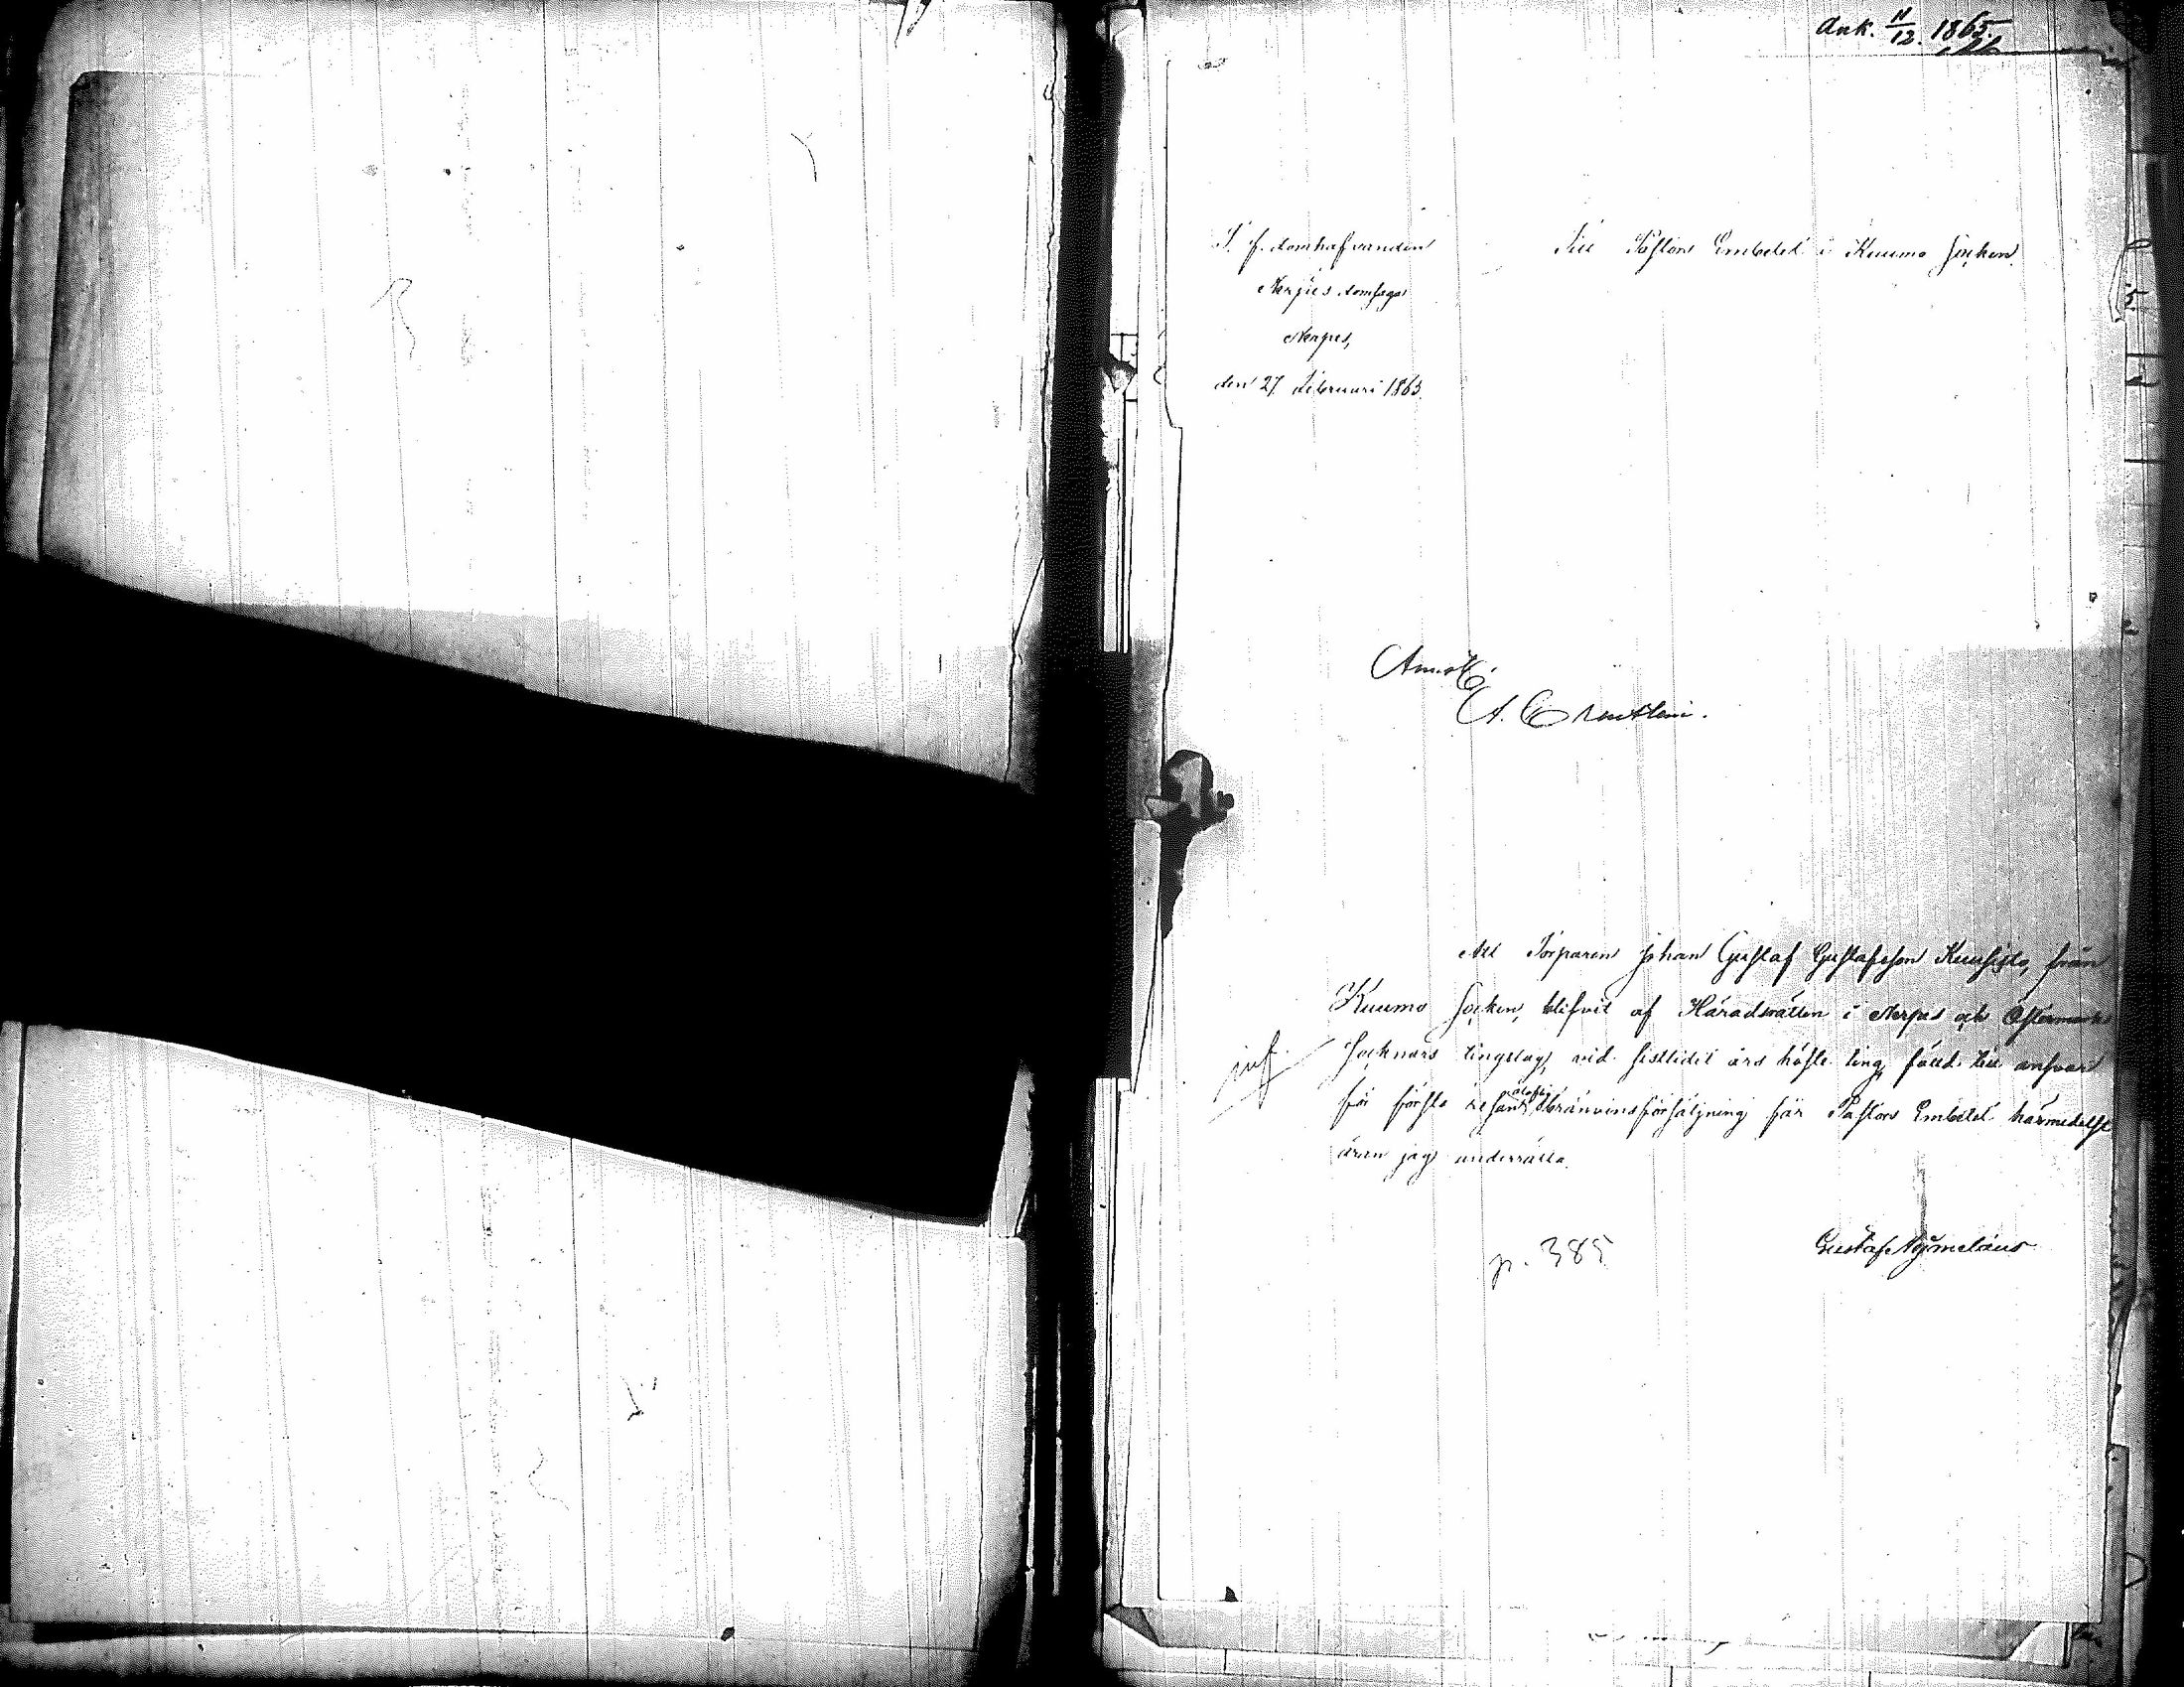 Ank. 11/12. 1865.
T. f. domhafvanden
Nerpes domsaga
Nerpes,
den 27 Februari 1863.
Till Pastors Embetet i Kuumo socken.
Annot.
Att Torparen Johan Gustaf Gustafsson Kuusisto, från
Kuumo socken, blifvit af Häradsrätten i Nerpes och Östermarks
socknars tingslag, vid sistlidet års höste ting, fälld till ansvar
för första resans oloflig bränvinsförsäljning får Pastors Embetet härmedelst
äran jag underrätta.
Gustaf Nymelaus
p. 385